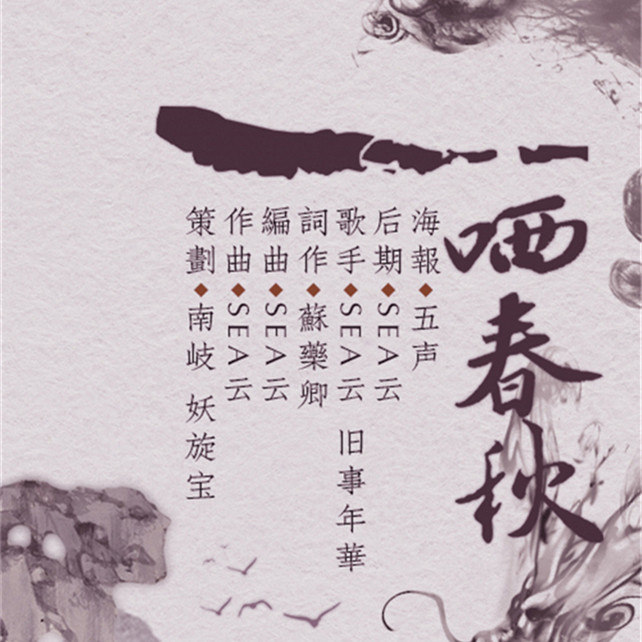 一哂春秋
海報◆五声
后期◆SEA云
歌手◆SEA云 旧事年華
詞作◆蘇藥卿
編曲◆SEA云
作曲◆SEA云
策劃◆南岐 妖旋宝